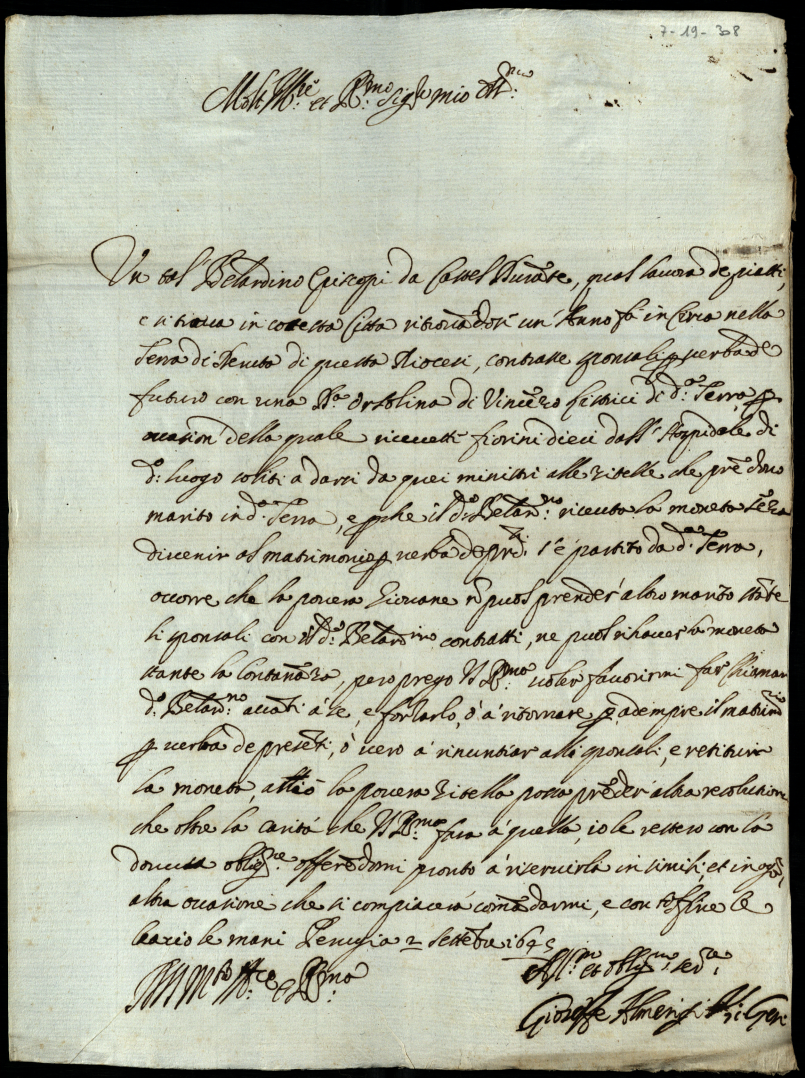 7-19-308
Molt Ill.re et R.mo Sig.re mio
Un tal Belardino Episcopi da Castel Durante, qual lavora de piatti,
e si trova in cotesta Citta ritrovādosi un' Anno fa in Circa nella
Terra di Deruta di questa Diocesi, contrasse sponsali p verba de
futuro con una Orsolina di Vincēzo di d.a Terra, p
occasion' della quale ricevette fiorini dieci dall' Hospidale di
d.o luogo soliti a darsi da quei ministri alle Zitelle che prēdono
marito in d.a Terra, e pche il d.o Belard.no ricevuta la moneta sēza
divenir al matrimonio p verba de prēti s'è partito da d.a Terra,
occorre che la povera Giovane nō puol prender' altro marito stāte
li sponsali con il d.o Belardino contratti, ne puol rihaver la moneta
stante la lontanāza, pero prego V S R.ma voler favorirmi far Chiamar
d.o Belard.no avāti a se, e forzarlo, ò à ritornare p adempire il matrimonio
p verba de presēti, ò vero à rinuntiar alli sponsali, e restituir
la moneta, acciò la povera Zitella possa prēder' altra resolutione
che oltre la carità che V S R.ma farà à quella, io le resterò con la
dovuta oblig.ne offerēdomi pronto à riservirla in simili, et in ogn'
altra occasione che si compiacerà comādarmi, e con tal fine le
bacio le mani Perugia 2 Settēbre 1645
V S Molto Ill.re et R.ma
Aff.mo et oblig.mo ser.re
Gioseffe Almerigi